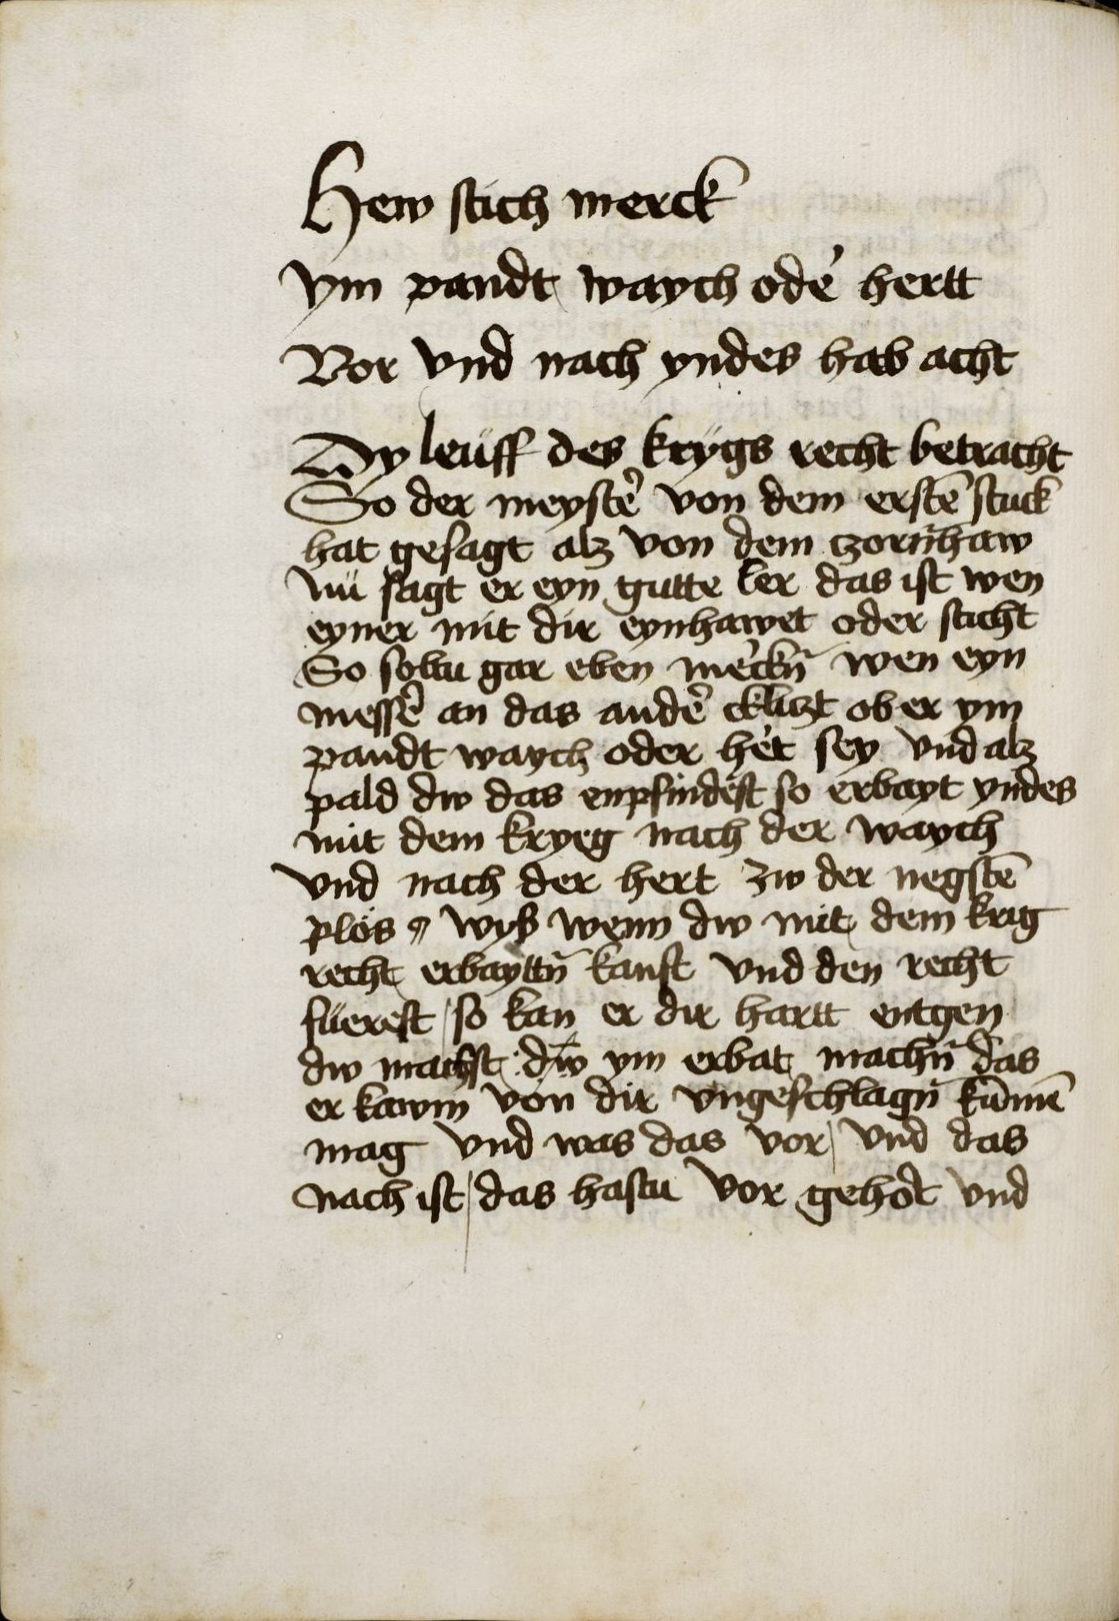 Hew stich merck
ym pandt waych ode᾿ hertt
Vor vnd nach yndes hab acht
Dy leüff des krÿgs recht betracht
So der meyste᾿ von dem erstē stuck
hat gesagt alz von dem tzorn̄haw
nü sagt er eyn gutte ler das ist wen
eyner mit dir eynhawet oder sticht
So soltu gar eben me᾿ckn̄ wen eyn
messe᾿ an das ande᾿ cklitzt ob er ym
pandt waych oder he᾿t sey vnd alz
pald dw das enpfindest so erbayt yndes
mit dem kryeg nach der waych
vnd nach der hert zw der negstē
plös wyß wenn dw mit dem krig
recht erbayttn̄ kanst vnd den recht
füerest so kan er dir hartt entgen
dw machst dw ym erbat machn̄ das
er kawm von dir vngeschlagn̄ kūmē
mag vnd was das vor vnd das
nach ist das hastu vor geho᾿t vnd